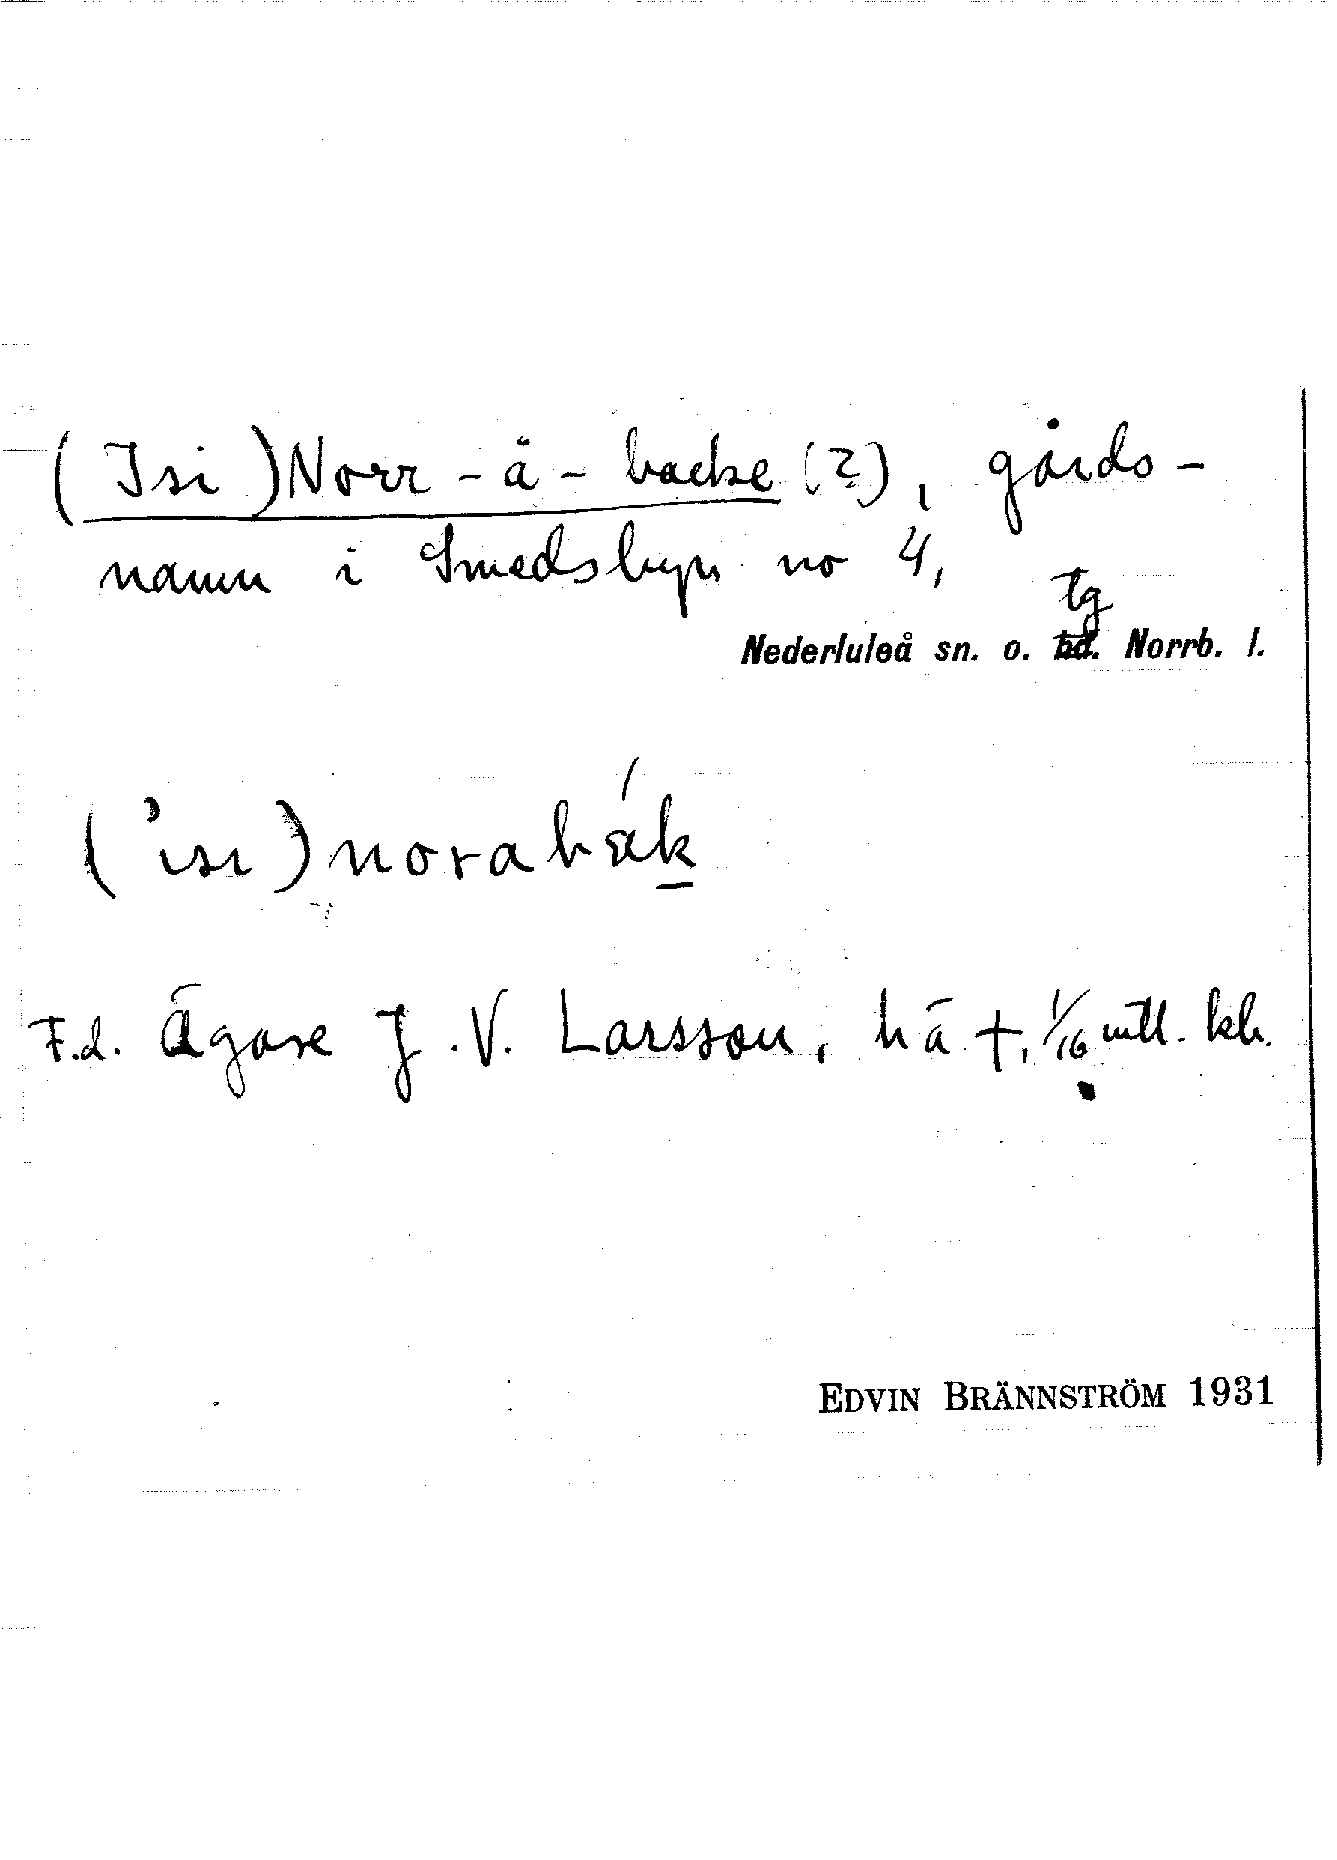 (Isi)Norr-å-backe (?), gårds-
namn i Smedsbyn no 4,
tg
Nederluleå sn. o. bd. Norrb. l.
('isi)norabák
F.d. Ägare J.V. Larsson, nä +, 1/16 mtl. kh.
EDVIN BRÄNNSTRÖM 1931